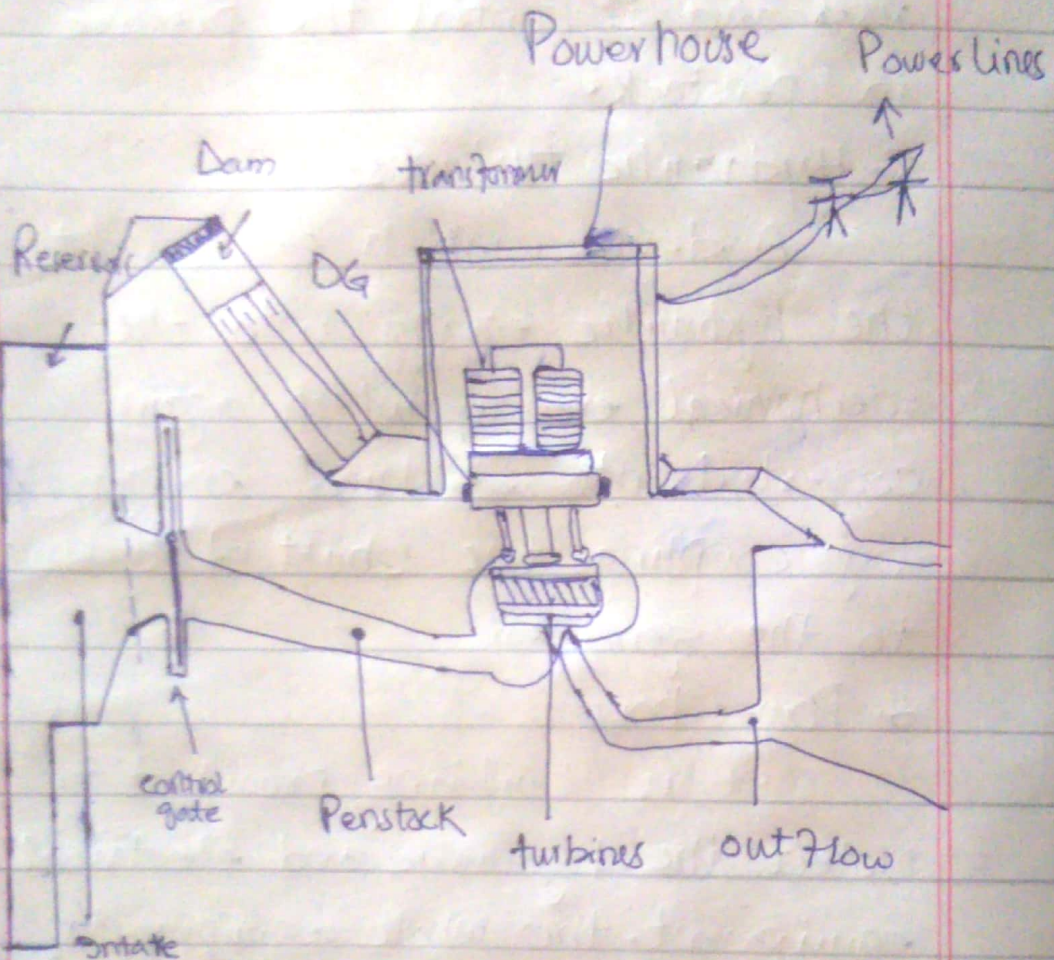 Powerhouse
Power lines
Dam
transformer
Reservoir
DG
control
gate
Penstock
turbines
outflow
Intake